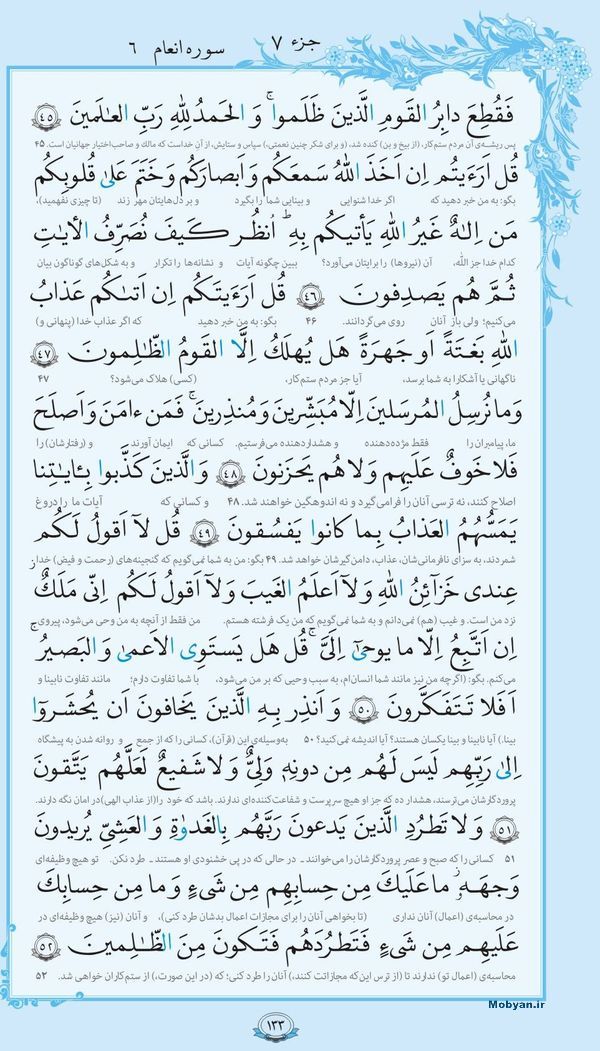 جزء ۷
سوره انعام ۶
فَقُطِعَ دابِرُ القَومِ الَّذینَ ظَلَموا ۚ وَ الحَمدُ لِلّٰهِ رَبِّ العٰـلَمینَ ﴿٤٥﴾
پس ریشه‌ی آن مردم ستم‌کار، (از بیخ و بن) کنده شد، (و برای شکر چنین نعمتی) سپاس و ستایش، از آنِ خداست که مالک و صاحب‌اختیار جهانیان است. ۴۵
قُل اَرَءَیتُم اِن اَخَذَ اللّٰهُ سَمعَكُم وَ اَبصارَكُم وَ خَتَمَ عَلیٰ قُلوبِكُم
بگو: به من خبر دهید که اگر خدا شنوایی و بینایی شما را بگیرد و بر دل‌هایتان مهر زند (تا چیزی نفهمید)،
مَن اِلٰهٌ غَیرُ اللّٰهِ یَأتیكُم بِهِ ۗ اُنظُر كَیفَ نُصَرِّفُ الأیٰتِ
کدام خدا جز اللّه، آن (نیروها) را برایتان می‌آورد؟ ببین چگونه آیات و نشانه‌ها را تکرار و به شکل‌های گوناگون بیان
ثُمَّ هُم یَصدِفونَ ﴿٤٦﴾ قُل اَرَءَیتَكُم اِن اَتىٰكُم عَذابُ
می‌کنیم؛ ولی باز آنان روی می‌گردانند. ۴۶ بگو: به من خبر دهید که اگر عذاب خدا (پنهانی و)
اللّٰهِ بَغتَةً اَو جَهرَةً هَل یُهلَكُ اِلَّا القَومُ الظّٰـلِمونَ ﴿٤٧﴾
ناگهانی یا آشکارا به شما برسد، آیا جز مردم ستم‌کار، (کسی) هلاک می‌شود؟ ۴۷
وَ ما نُرسِلُ المُرسَلینَ اِلّا مُبَشِّرینَ وَ مُنذِرینَ ۖ فَمَن ءامَنَ وَ اَصلَحَ
ما، پیامبران را فقط مژده‌دهنده و هشداردهنده می‌فرستیم. کسانی که ایمان آورند و (رفتارشان) را
فَلا خَوفٌ عَلَیهِم وَ لا هُم یَحزَنونَ ﴿٤٨﴾ وَ الَّذینَ كَذَّبوا بِـٔایٰتِنا
اصلاح کنند، نه ترسی آنان را فرامی‌گیرد و نه اندوهگین خواهند شد. ۴۸ و کسانی که آیات ما را دروغ
یَمَسُّهُمُ العَذابُ بِما كانوا یَفسُقونَ ﴿٤٩﴾ قُل لا اَقولُ لَكُم
شمردند، به سزای نافرمانی‌شان، عذاب، دامن‌گیرشان خواهد شد. ۴۹ بگو: من به شما نمی‌گویم که گنجینه‌های (رحمت و فیض) خدا
عِندی خَزآئِنُ اللّٰهِ وَ لا اَعلَمُ الغَیبَ وَ لا اَقولُ لَكُم اِنّی مَلَكٌ
نزد من است. و غیب (هم) نمی‌دانم و به شما نمی‌گویم که من یک فرشته هستم. من فقط از آنچه به من وحی می‌شود، پیروی
اِن اَتَّبِعُ اِلّا ما یوحىٰ اِلَیَّ ۚ قُل هَل یَستَوِی الاَعمىٰ وَ البَصیرُ ۚ
می‌کنم. بگو: (اگرچه من نیز مانند شما انسان‌ام، به سبب وحیی که بر من می‌شود، با شما تفاوت دارم؛ مانند تفاوت نابینا و
اَفَلا تَتَفَكَّرونَ ﴿٥٠﴾ وَ اَنذِر بِهِ الَّذینَ یَخافونَ اَن یُحشَروا
بینا.) آیا نابینا و بینا یکسان هستند؟ آیا اندیشه نمی‌کنید؟ ۵۰ به‌وسیله‌ی این (قرآن)، کسانی را که از جمع و روانه شدن به پیشگاه
اِلىٰ رَبِّهِم لَیسَ لَهُم مِن دونِهِ وَلِیٌّ وَ لا شَفیعٌ لَعَلَّهُم یَتَّقونَ
پروردگارشان می‌ترسند، هشدار ده که جز او هیچ سرپرست و شفاعت‌کننده‌ای ندارند. باشد که خود را (از عذاب الهی) در امان نگه دارند.
﴿٥١﴾ وَ لا تَطرُدِ الَّذینَ یَدعونَ رَبَّهُم بِالغَدوٰةِ وَ العَشِیِّ یُریدونَ
۵۱ کسانی را که صبح و عصر پروردگارشان را می‌خوانند ـ در حالی که در پی خشنودی او هستند ـ طرد نکن. تو هیچ وظیفه‌ای
وَجهَهُ ۖ ما عَلَیكَ مِن حِسابِهِم مِن شَیءٍ وَ ما مِن حِسابِكَ
در محاسبه‌ی (اعمال) آنان نداری (تا بخواهی آنان را برای مجازات اعمال بدشان طرد کنی)، و آنان (نیز) هیچ وظیفه‌ای در
عَلَیهِم مِن شَیءٍ فَتَطرُدَهُم فَتَكونَ مِنَ الظّٰـلِمینَ ﴿٥٢﴾
محاسبه‌ی (اعمال تو) ندارند تا (از ترس این‌که مجازاتت کنند،) آنان را طرد کنی؛ که (در این صورت،) از ستم‌کاران خواهی شد. ۵۲
۱۳۳
Mobyan.ir